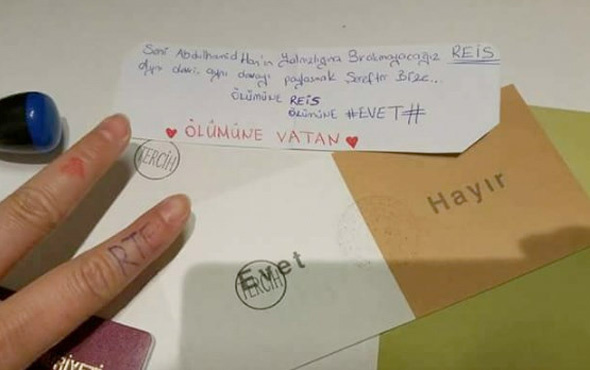 Seni Abdülhamid Han'ın Yalnızlığına Bırakmayacağız REİS
Aynı davayı paylaşmak Şereftir Bize...
ÖLÜMÜNE REİS
ÖLÜMÜNE #EVET#
♥ ÖLÜMÜNE VATAN ♥
TERCİH
RTE
Hayır
Evet
TERCİH